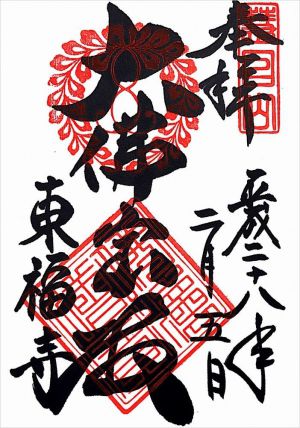 奉拝
平成二十八年
二月五日
大佛宝殿
東福寺